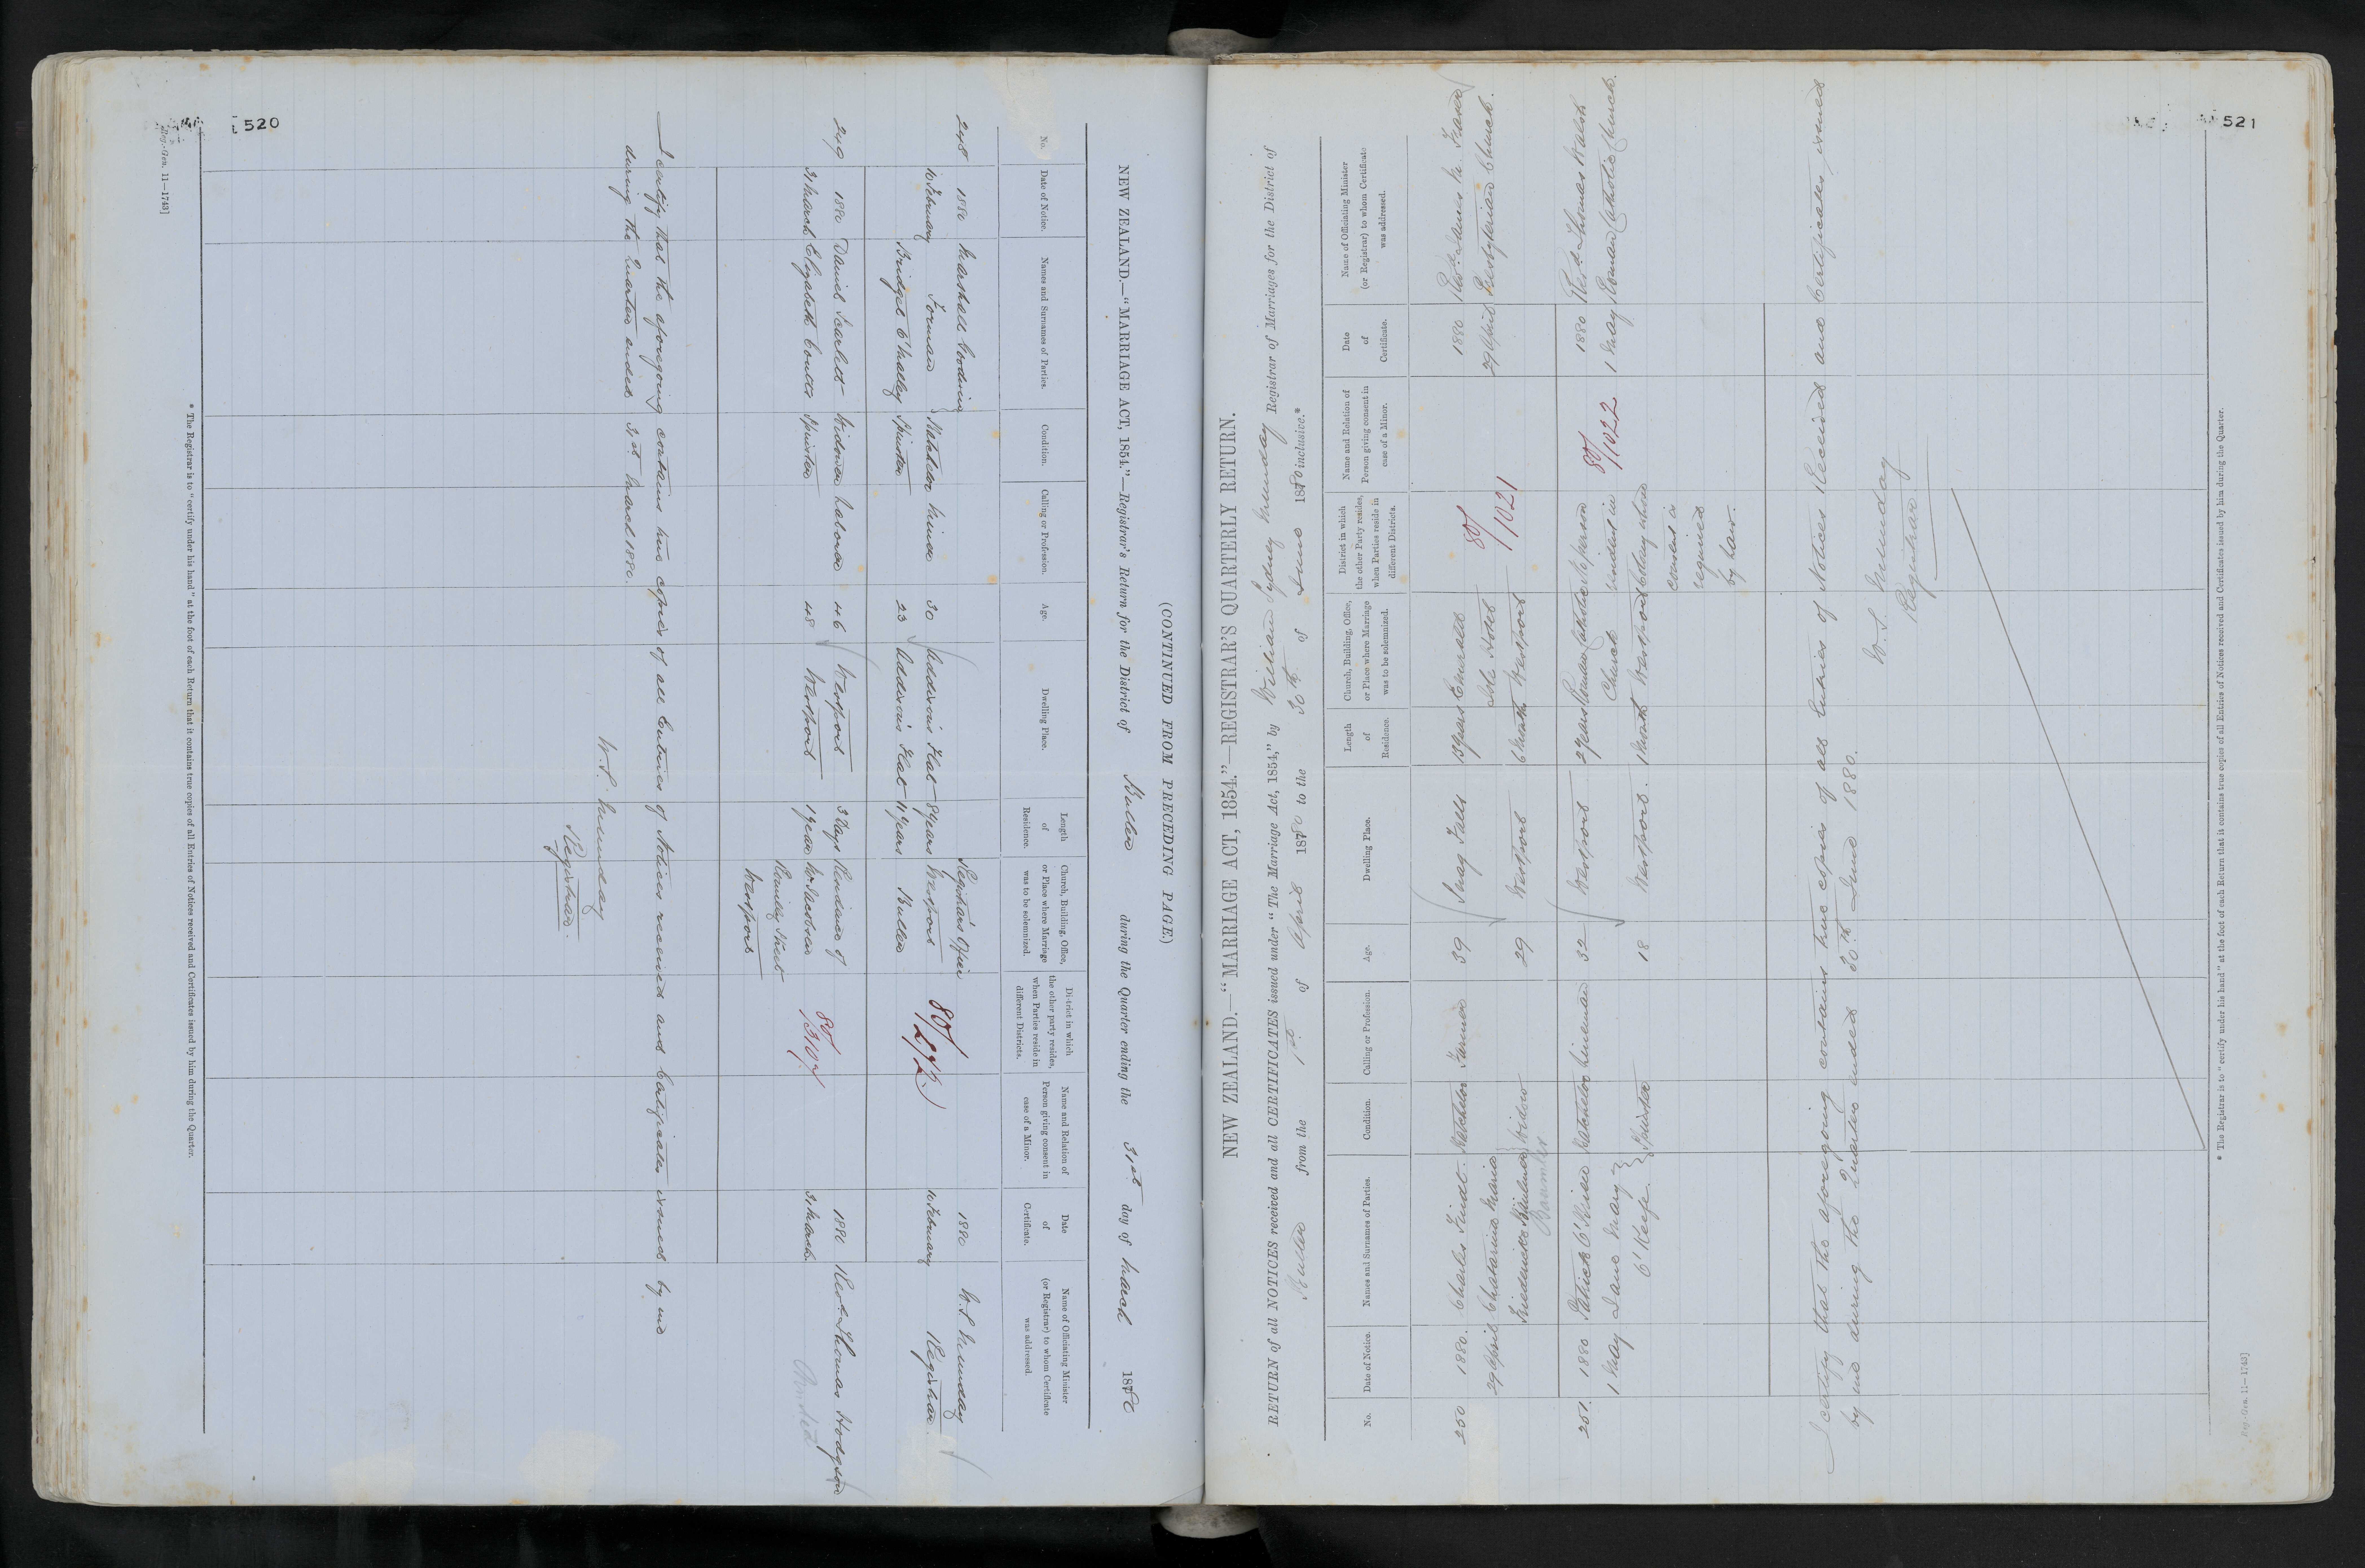 520
(CONTINUED FROM PRECEDING PAGE.)
NEW ZEALAND.—"MARRIAGE ACT, 1854."—Registrar's Return for the District of Buller during the Quarter ending the 31st day of March 1880
No.
Date of Notice.
Names and Surnames of Parties.
Condition.
Calling or Profession.
Age.
Dwelling Place.
Length
of
Residence.
Church, Building, Office,
or Place where Marriage
was to be solemnized.
District in which
the other party resides,
when Parties reside in
different Districts.
Name and Relation of
Person giving consent in
case of a Minor.
Date
of
Certificate.
Name of Officiating Minister
(or Registrar) to whom Certificate
was addressed.
248
1880
10 February
Marshall Gooding
Forman
Bridget O'Malley
Batchelor
Spinster
Miner
30
23
Addison's Flat
Addison's Flat
8 years
11 years
Registrar's Office
Westport
Buller
80/272
1880
10 February
W. S. Munday
Registrar
249
1880
31 March
Daniel Scarlett
Elizabeth Coutts
Widower
Spinster
Laborer
46
48
Westport
Westport
3 Days
1 year
Residence of
Mr Jacobsen
Street
Westport
80/1107
1880
31 March.
Revd. Thomas Hodgson
I certify that the aforegoing contains true copies of all Entries of Notices received and Certificates issued by me
during the Quarter ended 31st March 1880.
W. S. Munday
Registrar.
* The Registrar is to "certify under his hand" at the foot of each Return that it contains true copies of all Entries of Notices received and Certificates issued by him during the Quarter.
Reg.-Gen. 11—1743]
521
NEW ZEALAND.—"MARRIAGE ACT, 1854."—REGISTRAR'S QUARTERLY RETURN.
RETURN of all NOTICES received and all CERTIFICATES issued under "The Marriage Act, 1854," by William Sydney Munday Registrar of Marriages for the District of
Buller from the 1st of April 1880 to the 30th of June 1880 inclusive.*
No.
Date of Notice.
Names and Surnames of Parties.
Condition.
Calling or Profession.
Age.
Dwelling Place.
Length
of
Residence.
Church, Building, Office,
or Place where Marriage
was to be solemnized.
District in which
the other Party resides,
when Parties reside in
different Districts.
Name and Relation of
Person giving consent in
case of a Minor.
Date
of
Certificate.
Name of Officiating Minister
(or Registrar) to whom Certificate
was addressed.
250
1880.
29 April
Charles Findt.
Chatarina Maria
Friedericke
Batchelor
Widow
Farmer
39
29
Snag Falls
Westport
13 years
6 Month
Emerald
Isle Hotel
Westport
80/1021
1880
29 April
Revd. James M. Fraser
Presbyterian Church.
251.
1880
1 May
Patrick O'Brien
Jane Mary
O'Keefe.
Batchelor
Spinster
32
18
Westport
Westport.
2 years
1 Month
Roman Catholic
Church
Westport
No person
resident in
Colony whose
consent is
required
by law.
80/1022
1880
1 May
Revd. Thomas Walsh
Roman Catholic Church.
I certify that the aforegoing contains true copies of all Entries of Notices Received and Certificates issued
by me during the Quarter ended 30th June 1880.
W. S. Munday
Registrar
* The Registrar is to "certify under his hand" at the foot of each Return that it contains true copies of all Entries of Notices received and Certificates issued by him during the Quarter.
Reg.-Gen. 11—1743]